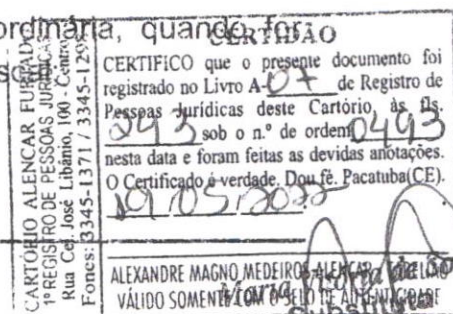 ordinária, quando for
CERTIDÃO
CERTIFICO que o presente documento foi
registrado no Livro A-07 de Registro de
Pessoas Jurídicas deste Cartório, às fls.
293 sob o n.º de ordem 0493
nesta data e foram feitas as devidas anotações.
O Certificado é verdade. Dou fé. Pacatuba(CE).
19/05/2022
ALEXANDRE MAGNO MEDEIROS ALENCAR
VÁLIDO SOMENTE COM O SELO DE AUTENTICIDADE
Maria
Substituta
CARTÓRIO ALENCAR FURTADO
1º REGISTRO DE PESSOAS JURÍDICAS
Rua Cel. José Libânio, 100 - Centro
Fones: 3345-1371 / 3345-129